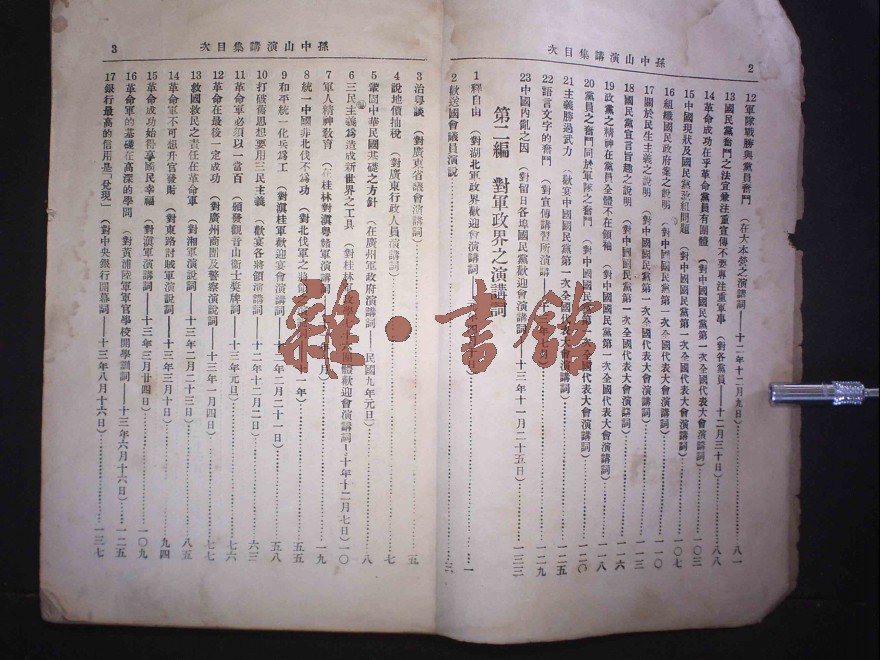 孫中山演講集目次
2
12 軍隊戰勝與黨員奮鬥（在大本營之演講詞——十二年十二月九日）…八一
13 國民黨奮鬥之法宜兼注重宣傳不要專注重軍事（對各黨員——十二月三十日）…八八
14 革命成功在乎革命黨員有團體（對中國國民黨第一次全國代表大會演講詞）…一〇三
15 中國現狀及國民黨改組問題（對中國國民黨第一次全國代表大會演講詞）…一〇七
16 組織國民政府案之說明（對中國國民黨第一次全國代表大會演講詞）…一一〇
17 關於民生主義之說明（對中國國民黨第一次全國代表大會演講詞）…一一三
18 國民黨宣言旨趣之說明（對中國國民黨第一次全國代表大會演講詞）…一一六
19 政黨之精神在黨員全體不在領袖（對中國國民黨第一次全國代表大會演講詞）…一一八
20 黨員之奮鬥同於軍隊之奮鬥（對中國國民黨第一次全國代表大會演講詞）…一二〇
21 主義勝過武力（歡宴中國國民黨第一次全國代表大會演講詞）…一二五
22 語言文字的奮鬥（對宣傳講習所演講——十三年七月）…一二九
23 中國內亂之因（對留日各埠國民黨歡迎會演講詞——十三年十一月二十五日）…一三三
第二編 對軍政界之演講詞
1 釋自由（對湖北軍政界歡迎會演講詞——…十日）…一
2 歡送國會議員演說…三
孫中山演講集目次
3
3 治粵談（對廣東省議會演講詞）…五
4 說地價抽稅（對廣東行政人員演講詞）…七
5 鞏固中華民國基礎之方針（在廣州軍政府演講詞——民國九年元旦）…八
6 三民主義為造成新世界之工具（對桂林…學…團體歡迎會演講詞——十年十二月七日）…一〇
7 軍人精神教育（在桂林對滇粵贛軍演講詞——…月）…一九
8 統一中國非北伐不為功（對北伐軍之將領…年）…五五
9 和平統一化兵為工（對滇桂軍歡迎宴會演講詞——十二年二月二十一日）…五八
10 打破舊思想要用三民主義（歡宴各將領演講詞——十二年十二月二日）…六三
11 革命軍必須以一當百（頒發觀音山衛士獎牌詞——十三年元旦）…七六
12 革命在最後一定成功（對廣州商團及警察演說詞——十三年一月四日）…七七
13 救國救民之責任在革命軍（對湘軍演說詞——十三年二月二十三日）…八五
14 革命軍不可想升官發財（對東路討賊軍演說詞——十三年三月十日）…九四
15 革命成功始得享國民幸福（對滇軍演講詞——十三年三月廿四日）…一〇九
16 革命軍的基礎在高深的學問（對黃埔陸軍軍官學校開學訓詞——十三年六月十六日）…一二五
17 銀行最高的信用是「兌現」（對中央銀行開幕詞——十三年八月十六日）…一三七
雜·書館